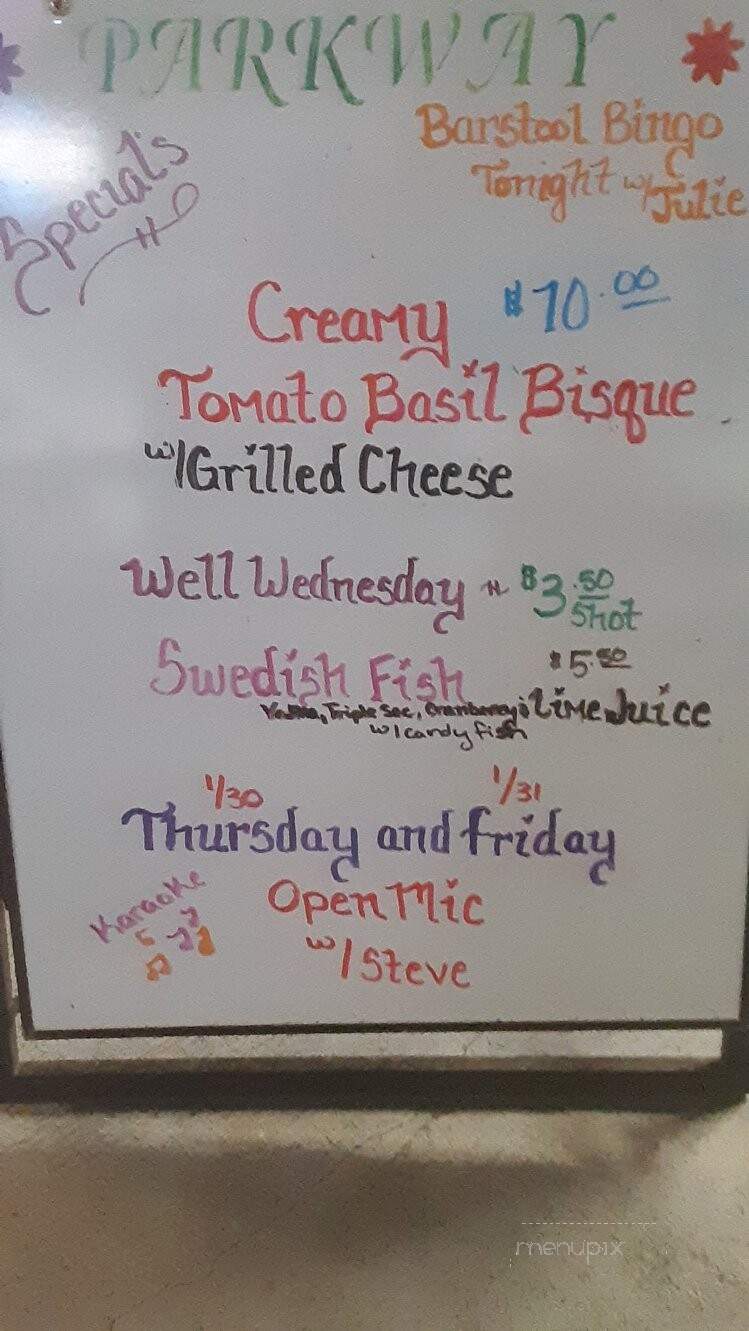 PARKWAY
Specials
Barstool Bingo
Tonight w/ Julie
Creamy $10.00
Tomato Basil Bisque
w/Grilled Cheese
Well Wednesday $3.50
Shot
Swedish Fish $5.50
Vodka, Triple Sec, Cranberry; Lime Juice
w/candy fish
1/30 1/31
Thursday and friday
Karaoke
Open Mic
w/ Steve
menupix